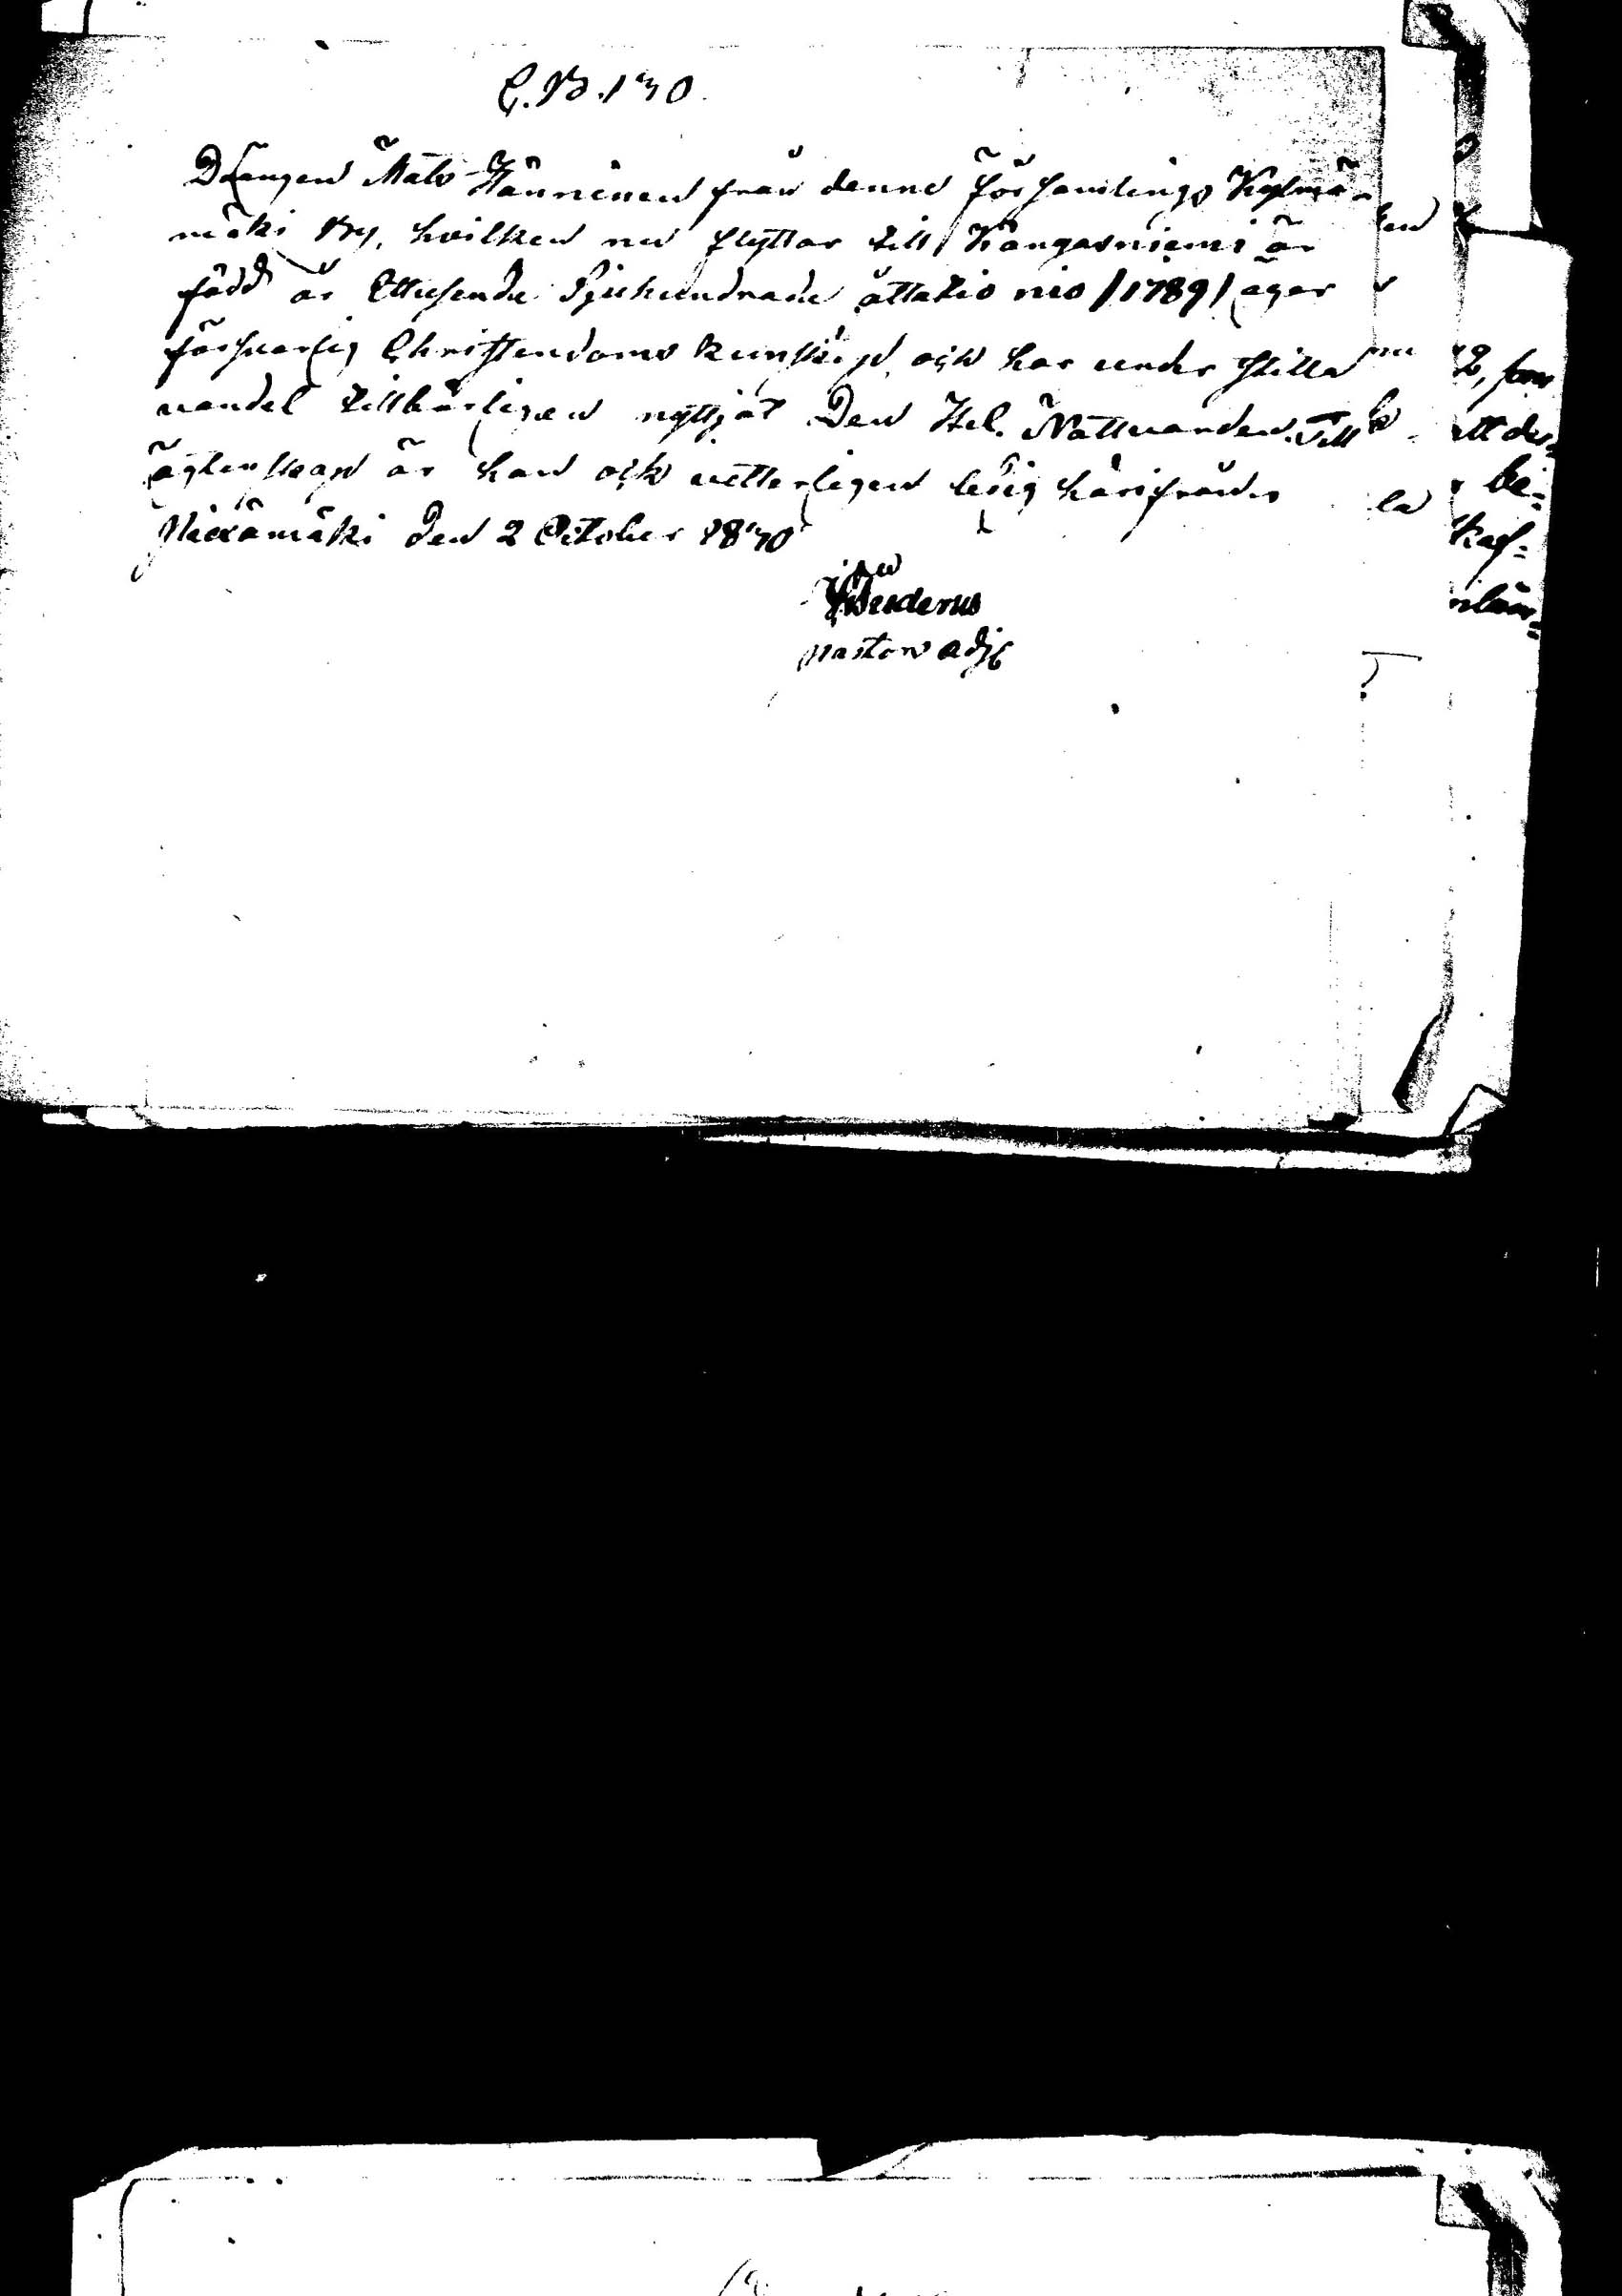 C.B. 130
Drängen Mats Hänninen från denne församlings Kylmä-
mäki By, hvilken nu flyttar till Kangasniemi är
född år Ettusende Sjuhundrade åttatio nio /1789/ äger
försvarlig Christendoms kunskap, och har under stilla
vandel tillbörligen nyttjat Den Hel. Nattvarden. Till
ägtenskap är han ock vetterligen ledig härifrån
den 2 October 1830
pastors adj: